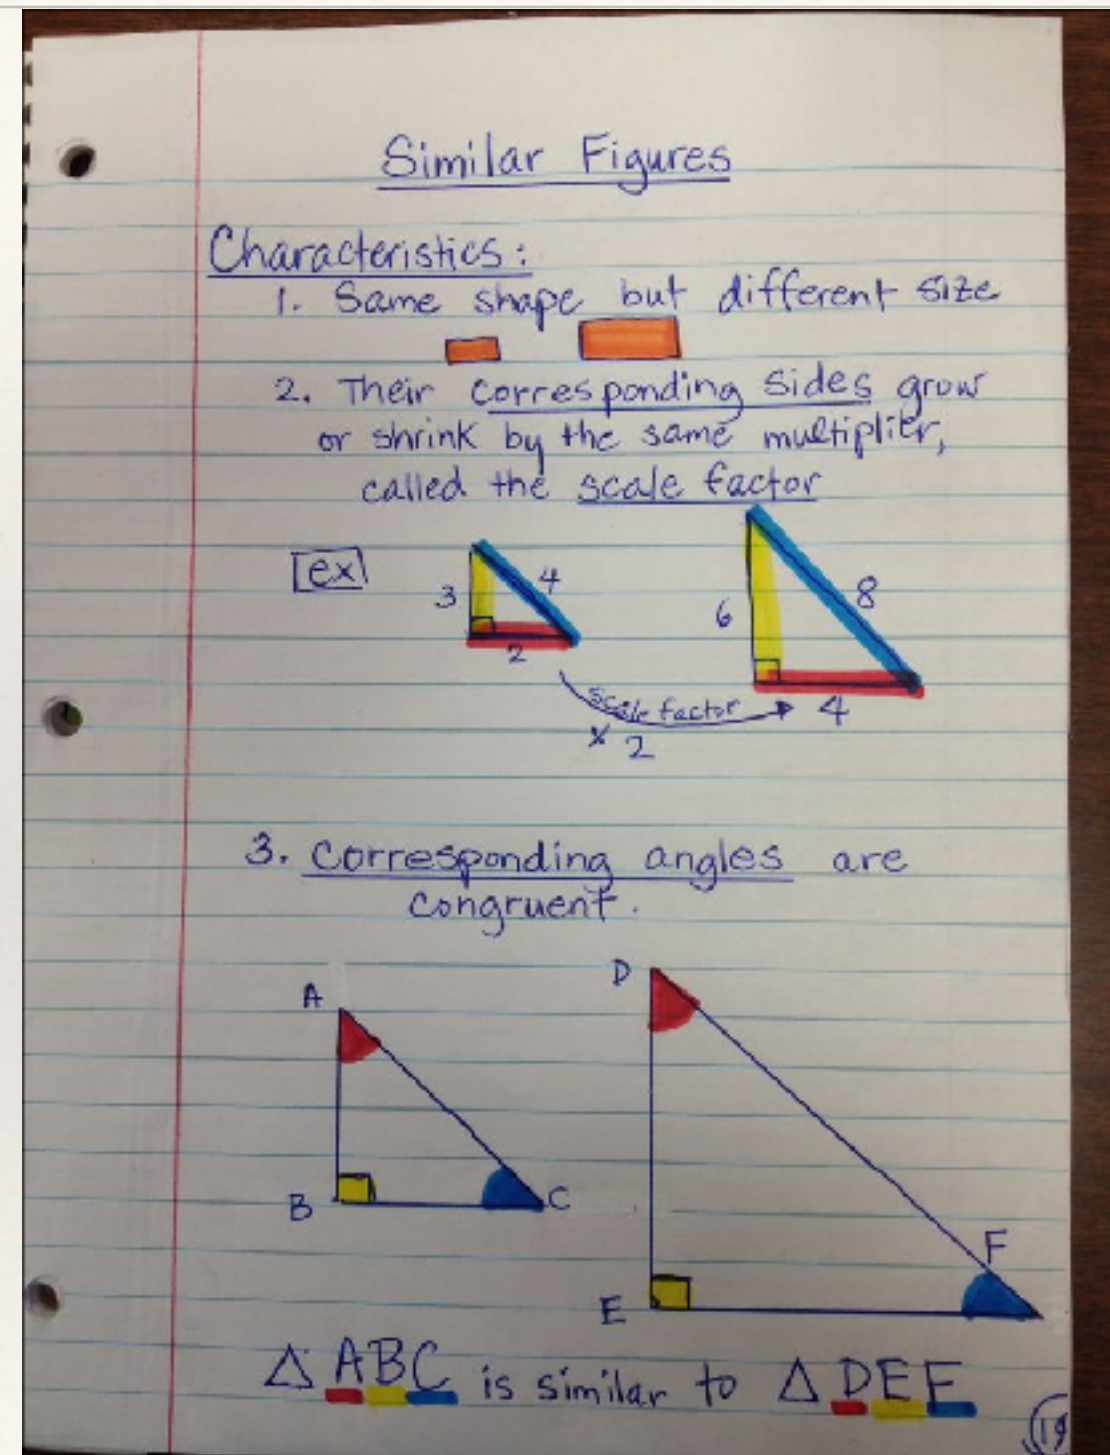 Similar Figures
Characteristics:
1. Same shape but different size
2. Their corresponding sides grow
or shrink by the same multiplier,
called the scale factor
ex
3
4
2
6
8
4
scale factor
x 2
3. Corresponding angles are
congruent.
A
B
C
D
E
F
△ ABC is similar to △ DEF